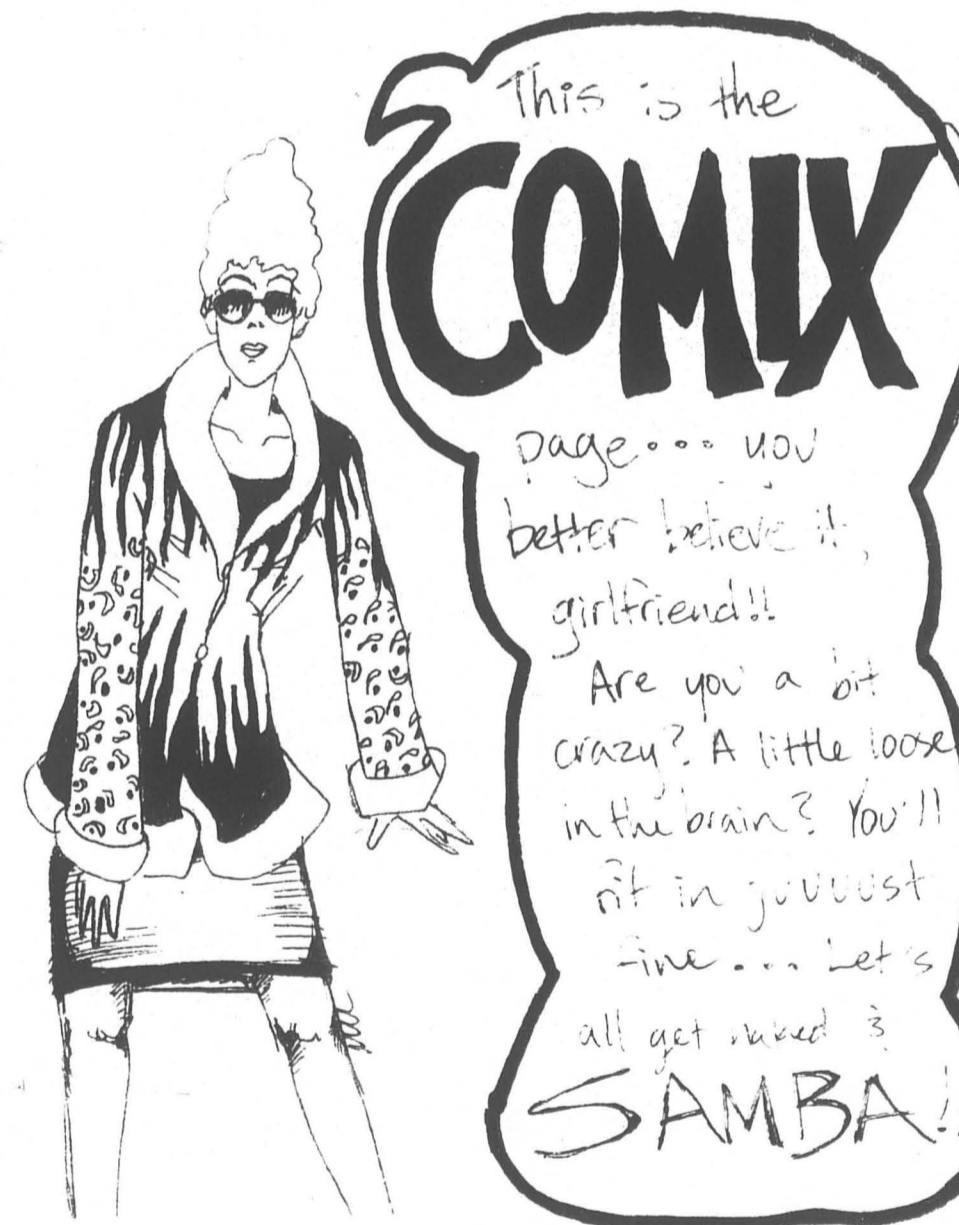 This is the
COMIX
page... you
better believe it,
girlfriend!!
Are you a bit
crazy? A little loose
in the brain? You'll
fit in juuuust
fine... Let's
all get naked &
SAMBA!